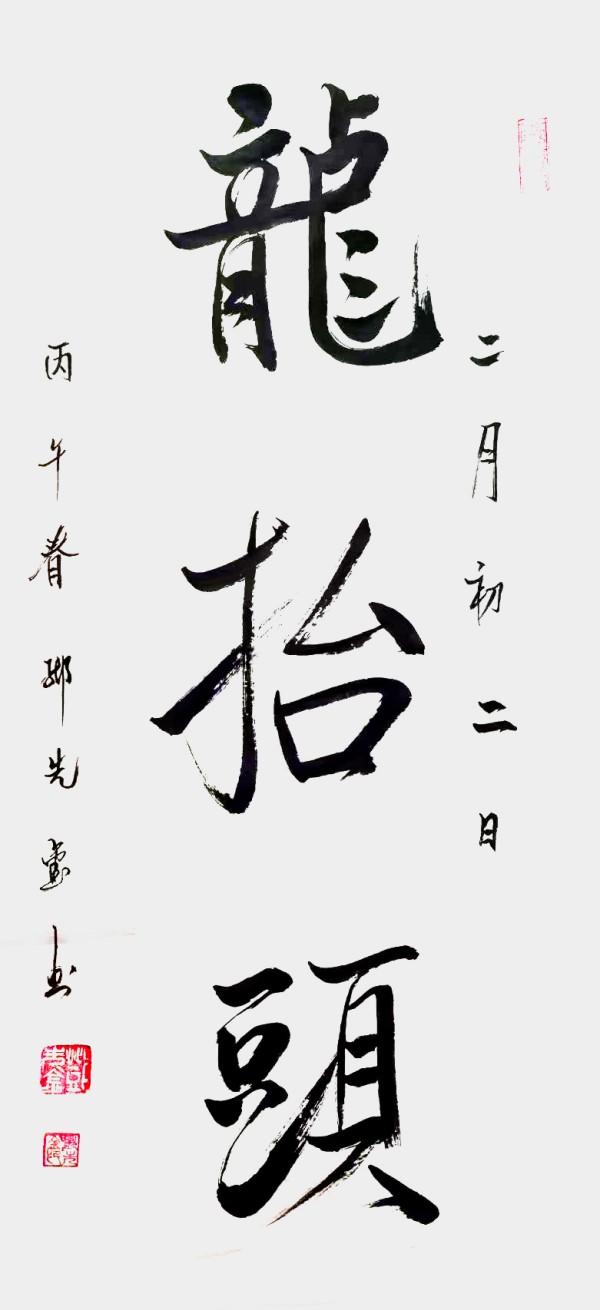 二月初二日
龍抬頭
丙午春鄉先堂书